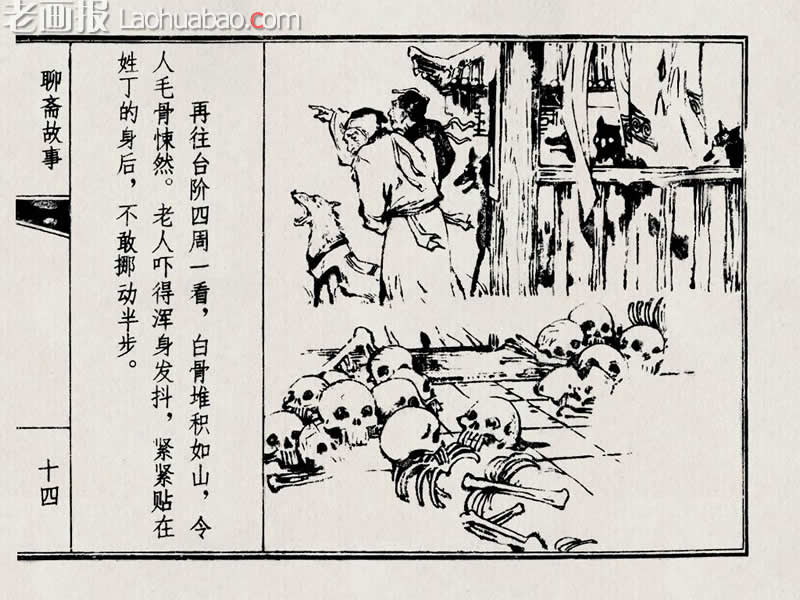 老画报 Laohuabao.com
聊斋故事
十四
再往台阶四周一看，白骨堆积如山，令
人毛骨悚然。老人吓得浑身发抖，紧紧贴在
姓丁的身后，不敢挪动半步。